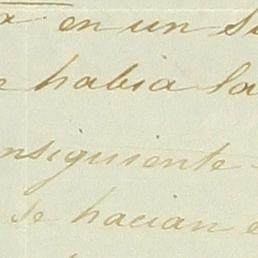 en un
habia la
nsiguiente
se hacian